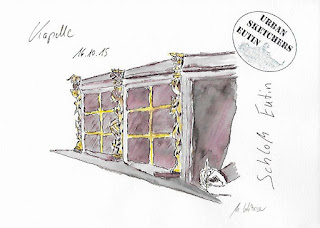 Kapelle
16.10.15
URBAN
SKETCHERS
EUTIN
Schloß Eutin